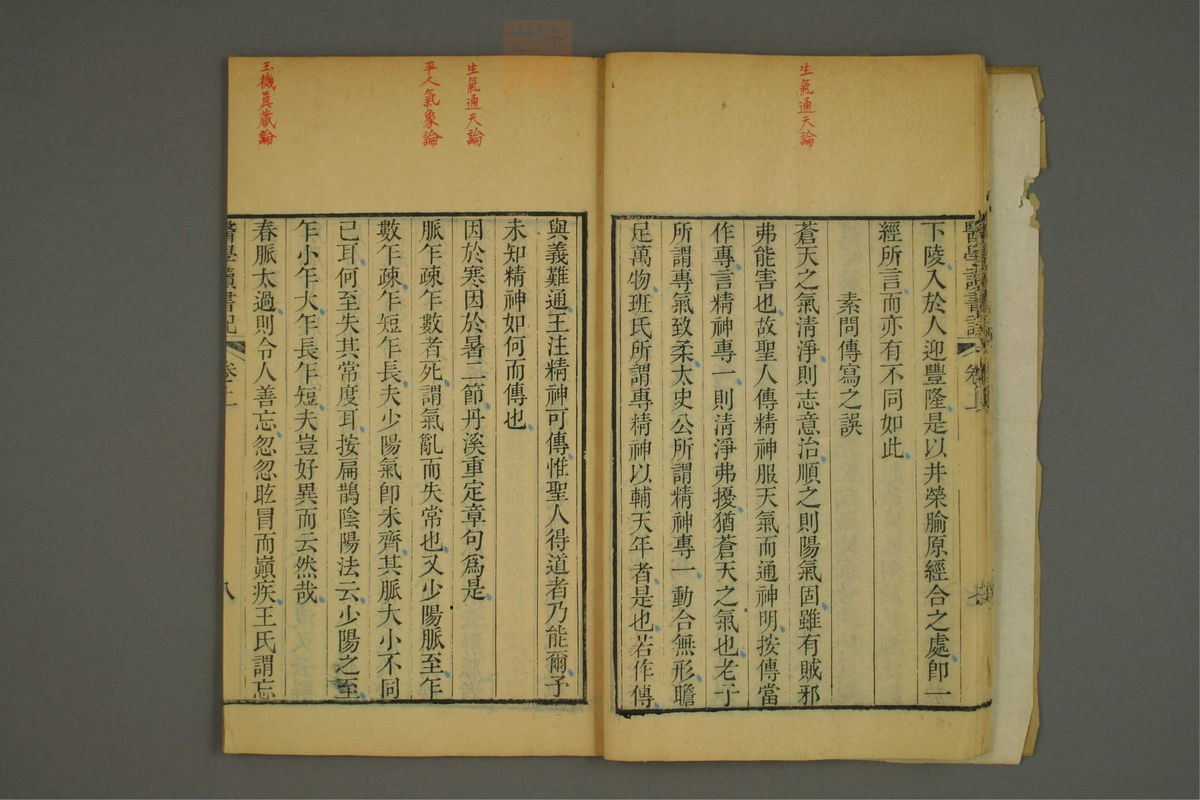 生氣通天論
下陵入於人迎豐隆是以井榮腧原經合之處卽一
經所言而亦有不同如此
素問傳寫之誤
蒼天之氣清淨則志意治順之則陽氣固雖有賊邪
弗能害也故聖人傳精神服天氣而通神明按傳當
作專言精神專一則清淨弗擾猶蒼天之氣也老子
所謂專氣致柔太史公所謂精神專一動合無形贍
足萬物班氏所謂專精神以輔天年者是也若作傳
生氣通天論
平人氣象論
玉機眞藏論
與義難通王注精神可傳惟聖人得道者乃能爾予
未知精神如何而傳也
因於寒因於暑二節丹溪重定章句爲是
脈乍疎乍數者死謂氣亂而失常也又少陽脈至乍
數乍疎乍短乍長夫少陽氣卽未齊其脈大小不同
已耳何至失其常度耳按扁鵲陰陽法云少陽之至
乍小乍大乍長乍短夫豈好異而云然哉
春脈太過則令人善忘忽忽眩冒而巔疾王氏謂忘
醫學讀書記
卷上
八